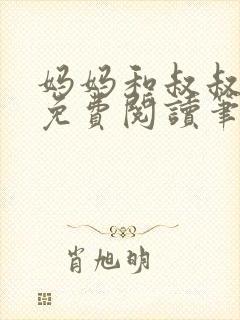 妈妈和叔叔
免費閱讀筆
肖旭明